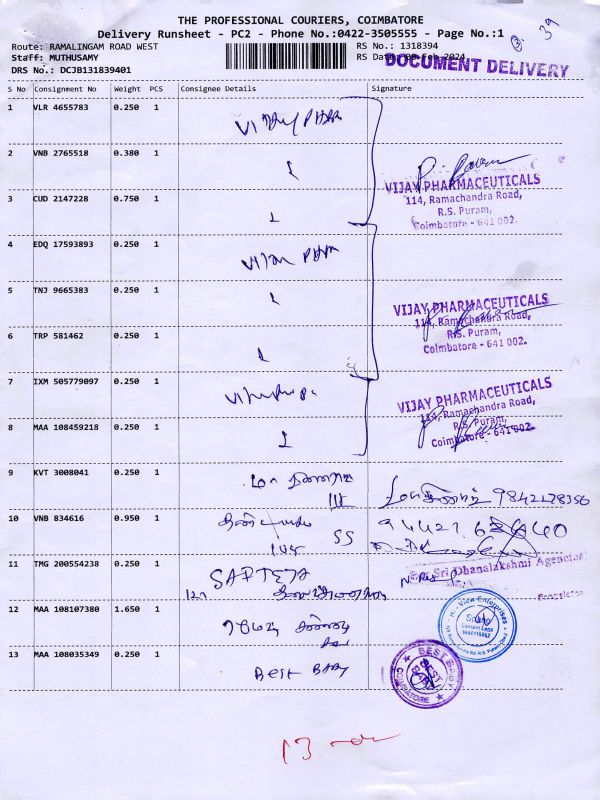 THE PROFESSIONAL COURIERS, COIMBATORE
Delivery Runsheet - PC2 - Phone No.:0422-3505555 - Page No.:1
Route: RAMALINGAM ROAD WEST
Staff: MUTHUSAMY
DRS No.: DCJB131839401
RS No.: 1318394
RS Date: 08-Feb-2024
DOCUMENT DELIVERY
39
S No Consignment No Weight PCS Consignee Details Signature
1 VLR 4655783 0.250 1
2 VNB 2765518 0.380 1
VIJAY PHARMACEUTICALS
114, Ramachandra Road,
R.S. Puram,
Coimbatore - 641 002.
3 CUD 2147228 0.750 1
4 EDQ 17593893 0.250 1
5 TNJ 9665383 0.250 1
VIJAY PHARMACEUTICALS
114, Ramachandra Road,
R.S. Puram,
Coimbatore - 641 002.
6 TRP 581462 0.250 1
7 IXM 505779097 0.250 1
VIJAY PHARMACEUTICALS
114, Ramachandra Road,
R.S. Puram,
Coimbatore - 641 002.
8 MAA 108459218 0.250 1
9 KVT 3008041 0.250 1
10 VNB 834616 0.950 1 SS
11 TMG 200554238 0.250 1
For Sri Dhanalakshmi Agencies
12 MAA 108107380 1.650 1
Hi-View Enterprises
13 MAA 108035349 0.250 1 BEST BABY
BEST BABY
COIMBATORE
13